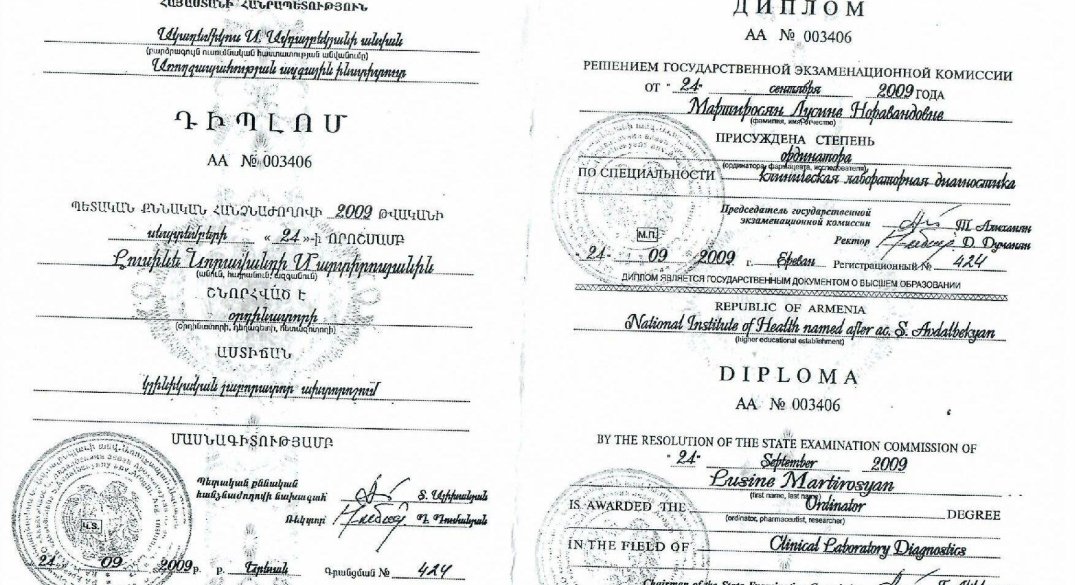 ՀԱՅԱՍՏԱՆԻ ՀԱՆՐԱՊԵՏՈՒԹՅՈՒՆ
Ակադեմիկոս Ս. Ավդալբեկյանի անվան
(բարձրագույն ուսումնական հաստատության անվանումը)
Առողջապահության ազգային ինստիտուտ
ԴԻՊԼՈՄ
ԱԱ № 003406
ՊԵՏԱԿԱՆ ՔՆՆԱԿԱՆ ՀԱՆՁՆԱԺՈՂՈՎԻ 2009 ԹՎԱԿԱՆԻ
սեպտեմբերի « 24 »-ի ՈՐՈՇՄԱՄԲ
Լուսինե Նորավանդի Մարտիրոսյանին
(անուն, հայրանուն, ազգանուն)
ՇՆՈՐՀՎԱԾ Է
օրդինատորի
(օրդինատորի, դեղագետի, հետազոտողի)
ԱՍՏԻՃԱՆ
կլինիկական լաբորատոր ախտորոշում
ՄԱՍՆԱԳԻՏՈՒԹՅԱՄԲ
Պետական քննական
հանձնաժողովի նախագահ
Ռեկտոր Դ. Դումանյան
Կ.Տ.
24 09 2009 р. ք. Երևան Գրանցման № 424
ДИПЛОМ
АА № 003406
РЕШЕНИЕМ ГОСУДАРСТВЕННОЙ ЭКЗАМЕНАЦИОННОЙ КОМИССИИ
ОТ " 24 " сентября 2009 ГОДА
Мартиросян Лусине Норавандовне
(фамилия, имя, отчество)
ПРИСУЖДЕНА СТЕПЕНЬ
ординатора
(ординатора, фармацевта, исследователя)
ПО СПЕЦИАЛЬНОСТИ клиническая лабораторная диагностика
Председатель государственной
экзаменационной комиссии
Ректор Д. Думанян
М.П.
" 24 " 09 2009 г. Ереван Регистрационный № 424
ДИПЛОМ ЯВЛЯЕТСЯ ГОСУДАРСТВЕННЫМ ДОКУМЕНТОМ О ВЫСШЕМ ОБРАЗОВАНИИ
REPUBLIC OF ARMENIA
National Institute of Health named after ac. S. Avdalbekyan
(higher educational establishment)
DIPLOMA
AA № 003406
BY THE RESOLUTION OF THE STATE EXAMINATION COMMISSION OF
" 24 " September 2009
Lusine Martirosyan
(first name, last name)
IS AWARDED THE Ordinator DEGREE
(ordinator, pharmaceutist, researcher)
IN THE FIELD OF Clinical Laboratory Diagnostics
Chairman of the State Examination